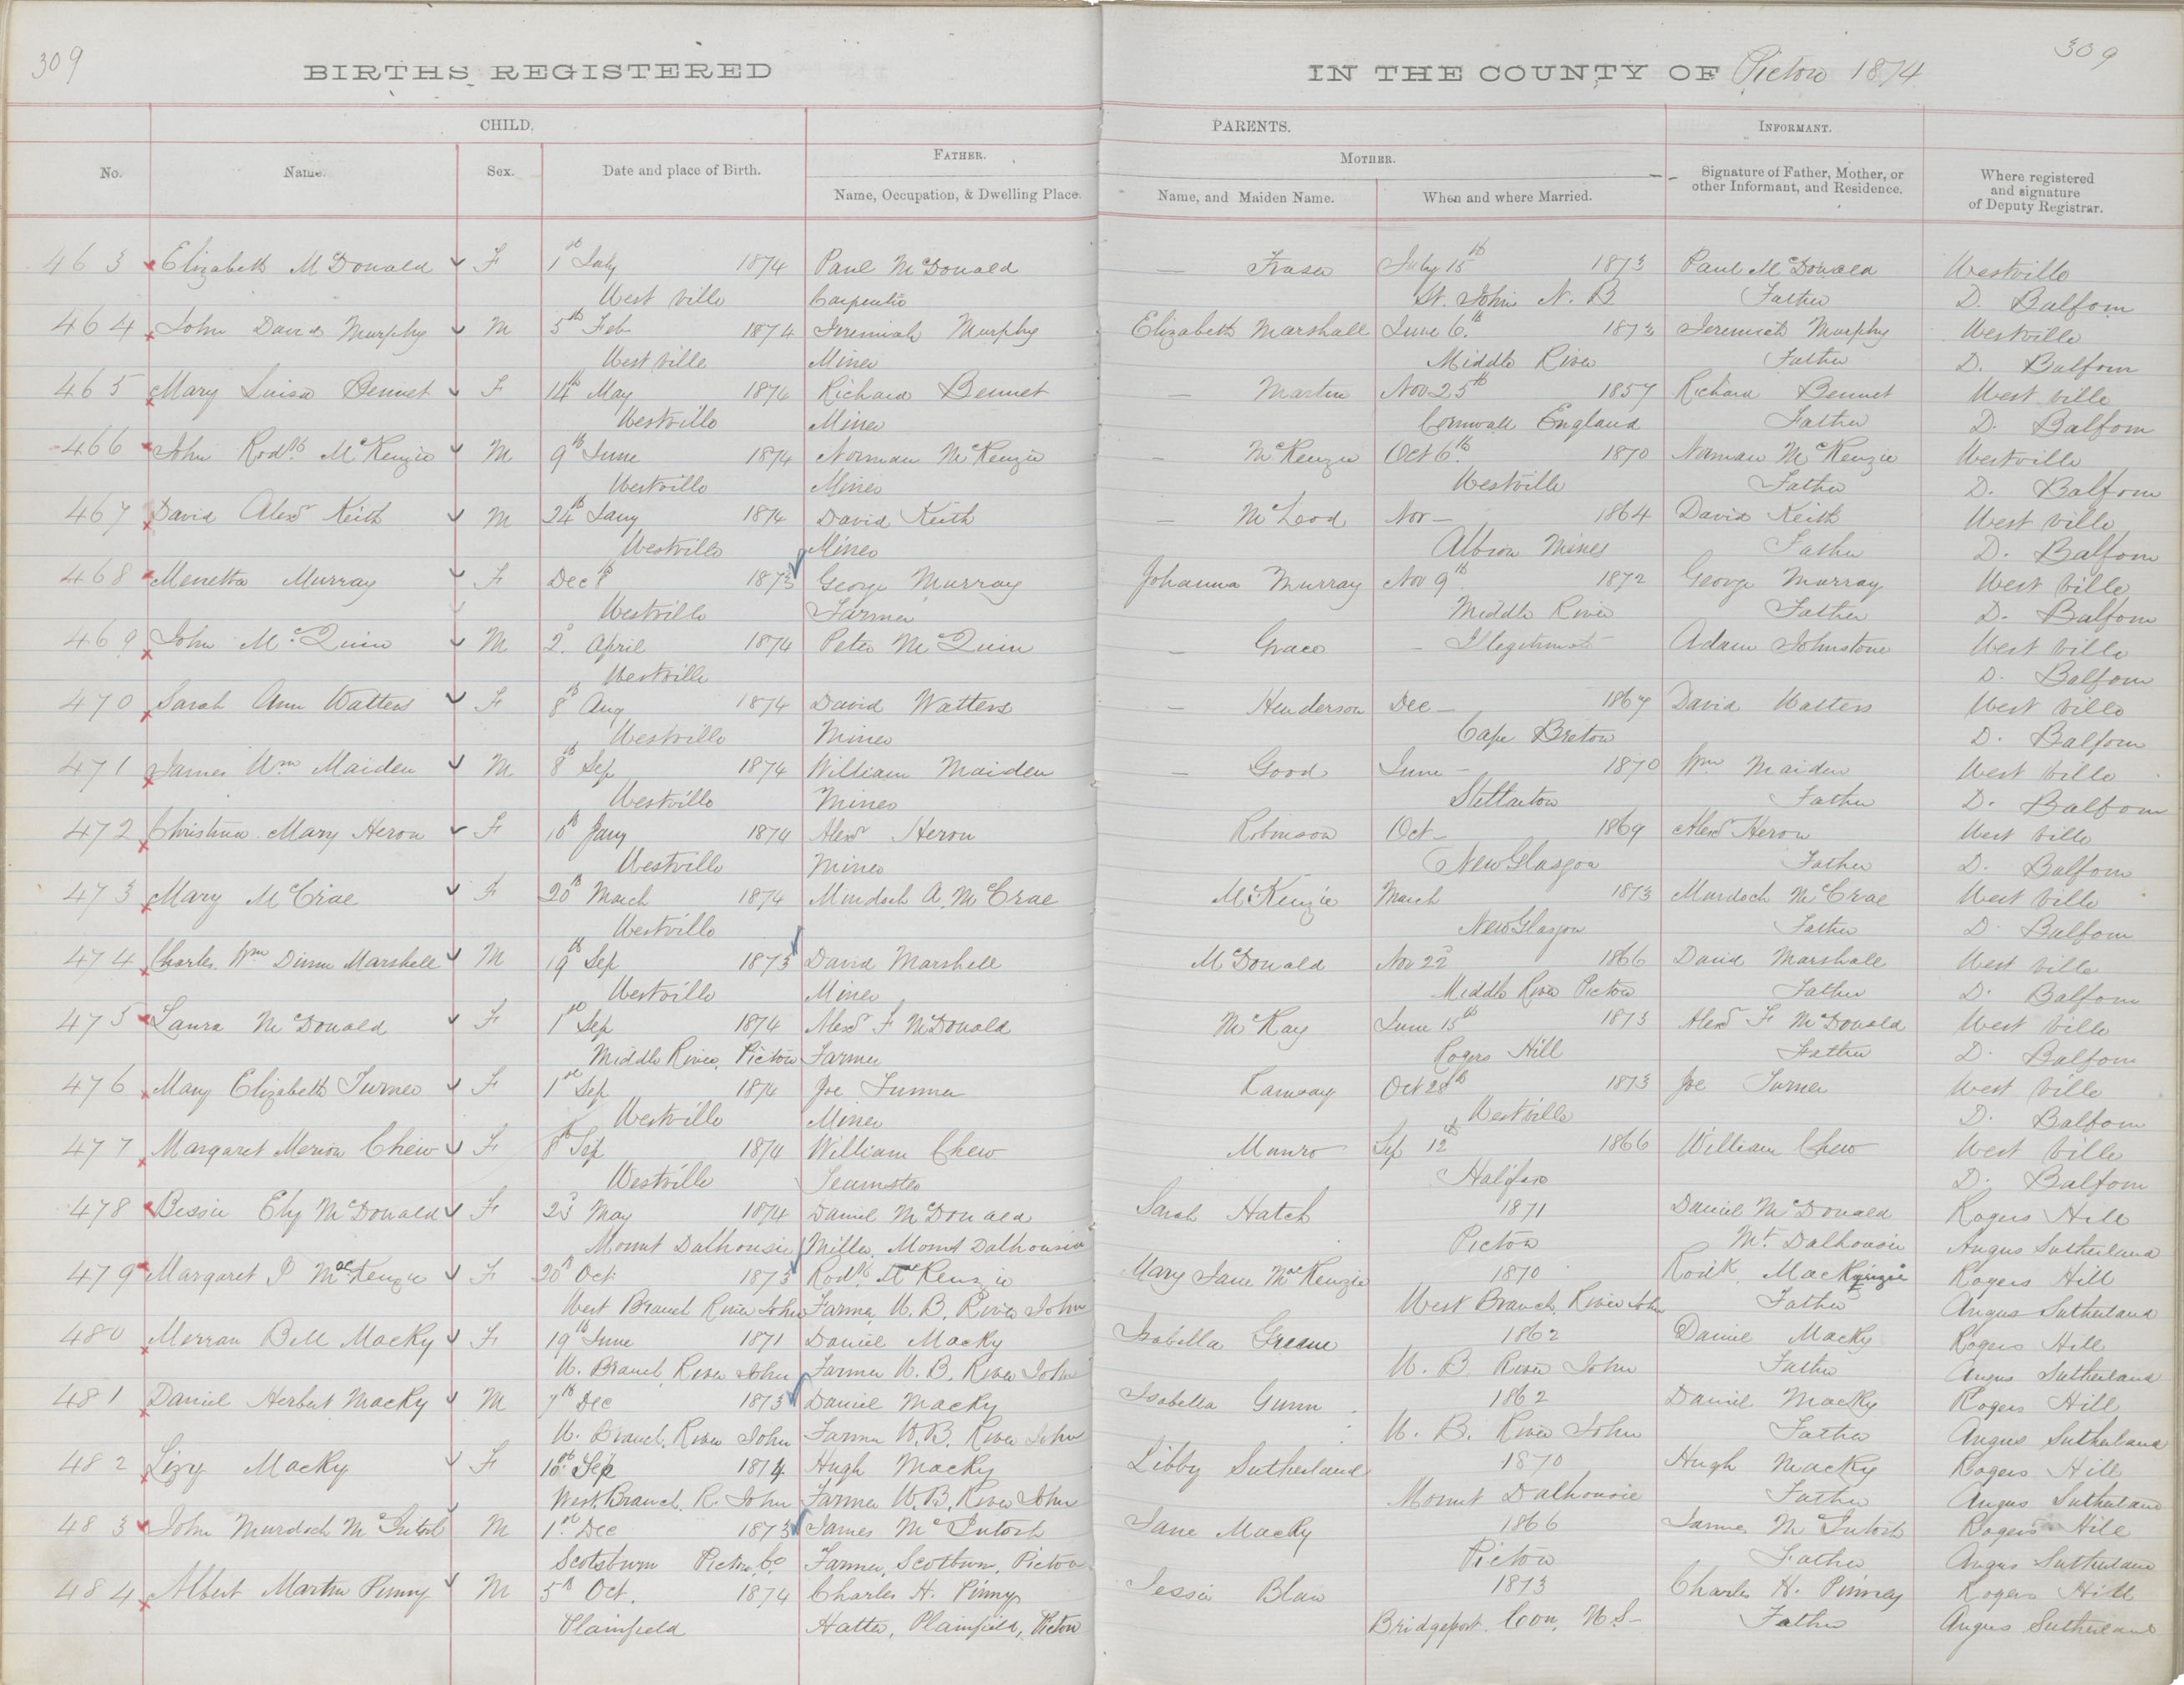 309
309
BIRTHS REGISTERED IN THE COUNTY OF Pictou 1874
CHILD. PARENTS. INFORMANT.
No. Name. Sex. Date and place of Birth. FATHER. Name, Occupation, & Dwelling Place. MOTHER. Name, and Maiden Name. When and where Married. Signature of Father, Mother, or other Informant, and Residence. Where registered and signature of Deputy Registrar.
463 Elizabeth McDonald F 1st July 1874 Paul McDonald — Fraser July 15th 1873 Paul McDonald Westville
West ville Carpenter St. John N. B. Father D. Balfour
464 John David Murphy M 5th Feb 1874 Jeremiah Murphy Elizabeth Marshall June 6th 1873 Jeremiah Murphy Westville
West ville Miner Middle River Father D. Balfour
465 Mary Luisa Bennet F 14th May 1874 Richard Bennet — Martin Nov 25th 1857 Richard Bennet West ville
Westville Miner Cornwall England Father D. Balfour
466 John Rodk McKenzie M 9th June 1874 Norman McKenzie — McKenzie Oct 6th 1870 Norman McKenzie Westville
Westville Miner Westville Father D. Balfour
467 David Alexr Keith M 24th Jany 1874 David Keith — McLeod Nov — 1864 David Keith West ville
Westville Miner Albion Mines Father D. Balfour
468 Menetta Murray F Dec 8th 1873 George Murray Johanna Murray Nov 9th 1872 George Murray West ville
Westville Farmer Middle River Father D. Balfour
469 John McQuin M 2d April 1874 Peter McQuin — Grace — Illegitimate Adam Johnstone West ville
Westville D. Balfour
470 Sarah Ann Watters F 8th Aug 1874 David Watters — Henderson Dec — 1867 David Watters West ville
Westville Miner Cape Breton D. Balfour
471 James Wm Maiden M 8th Sep 1874 William Maiden — Good June — 1870 Wm Maiden West ville
Westville Miner Stellarton Father D. Balfour
472 Christina Mary Heron F 10th Jany 1874 Alexr Heron Robinson Oct — 1869 Alexr Heron West ville
Westville Miner New Glasgow Father D. Balfour
473 Mary McCrae F 20th March 1874 Murdoch A. McCrae McKenzie March 1873 Murdoch McCrae West ville
Westville New Glasgow Father D. Balfour
474 Charles Wm Dunn Marshall M 19th Sep 1873 David Marshall McDonald Nov 22d 1866 David Marshall West ville
Westville Miner Middle River Pictou Father D. Balfour
475 Laura McDonald F 1st Sep 1874 Alexr F McDonald McKay June 15th 1873 Alexr F McDonald West ville
Middle River, Pictou Farmer Rogers Hill Father D. Balfour
476 Mary Elizabeth Turner F 1st Sep 1874 Joe Turner Ramsay Oct 28th 1873 Joe Turner West ville
Westville Miner Westville D. Balfour
477 Margaret Merion Chew F 8th Sep 1874 William Chew Munro Sep 12th 1866 William Chew West ville
Westville Teamster Halifax D. Balfour
478 Bessie Ely McDonald F 23d May 1874 Daniel McDonald Sarah Hatch 1871 Daniel McDonald Rogers Hill
Mount Dalhousie Miller, Mount Dalhousie Pictou Mt. Dalhousie Angus Sutherland
479 Margaret J MacKenzie F 20th Oct 1873 Rodk McKenzie Mary Jane MacKenzie 1870 Rodk. MacKenzie Rogers Hill
West Branch River John Farmer, W. B. River John West Branch River John Father Angus Sutherland
480 Merran Bell MacKy F 19th June 1871 Daniel MacKy Isabella Greene 1862 Daniel MacKy Rogers Hill
W. Branch River John Farmer W. B. River John W. B. River John Father Angus Sutherland
481 Daniel Herbert MacKy M 7th Dec 1873 Daniel MacKy Isabella Gunn 1862 Daniel MacKy Rogers Hill
W. Branch River John Farmer W. B. River John W. B. River John Father Angus Sutherland
482 Lizy MacKy F 10th Sep 1874 Hugh MacKy Libby Sutherland 1870 Hugh MacKy Rogers Hill
West Branch R. John Farmer W. B. River John Mount Dalhousie Father Angus Sutherland
483 John Murdoch McIntosh M 1st Dec 1873 James McIntosh Jane MacKy 1866 James McIntosh Rogers Hill
Scotsburn Pictou Co Farmer, Scotburn, Pictou Pictou Father Angus Sutherland
484 Albert Martin Pinny M 5th Oct. 1874 Charles H. Pinny Jessie Blair 1873 Charles H. Pinney Rogers Hill
Plainfield Hatter, Plainfield, Pictou Bridgeport. Conn, U. S. Father Angus Sutherland